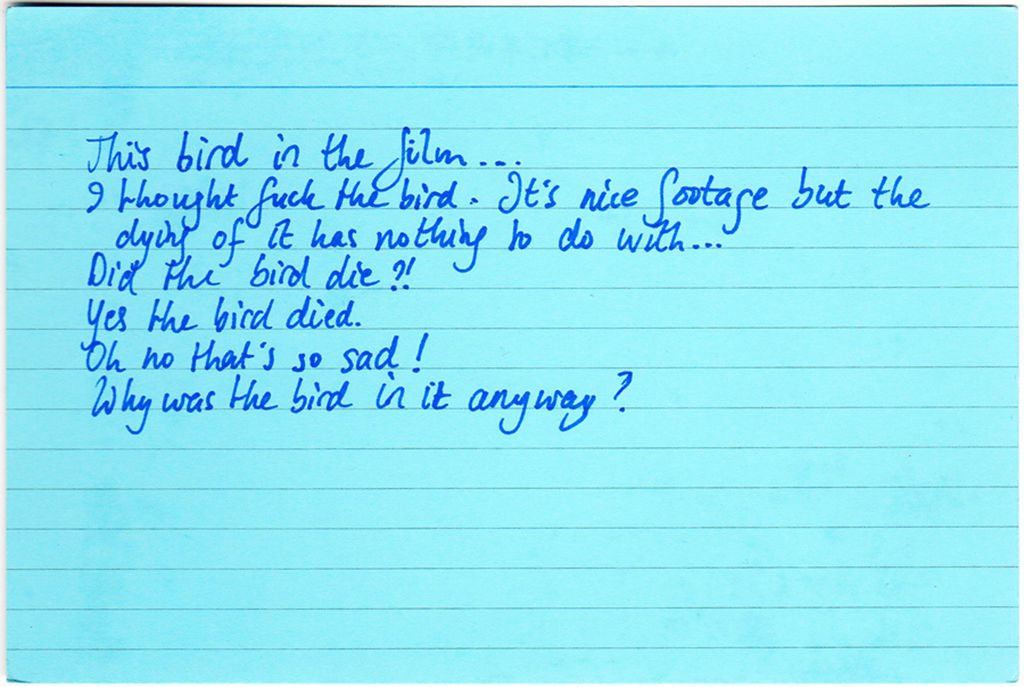 This bird in the film...
I thought fuck the bird. It's nice footage but the
dying of it has nothing to do with...
Did the bird die?!
Yes the bird died.
Oh no that's so sad!
Why was the bird in it anyway?